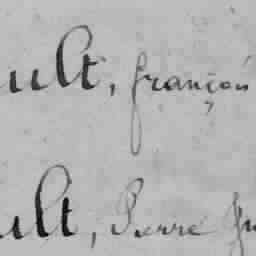 ult, françois
ult, Pierre